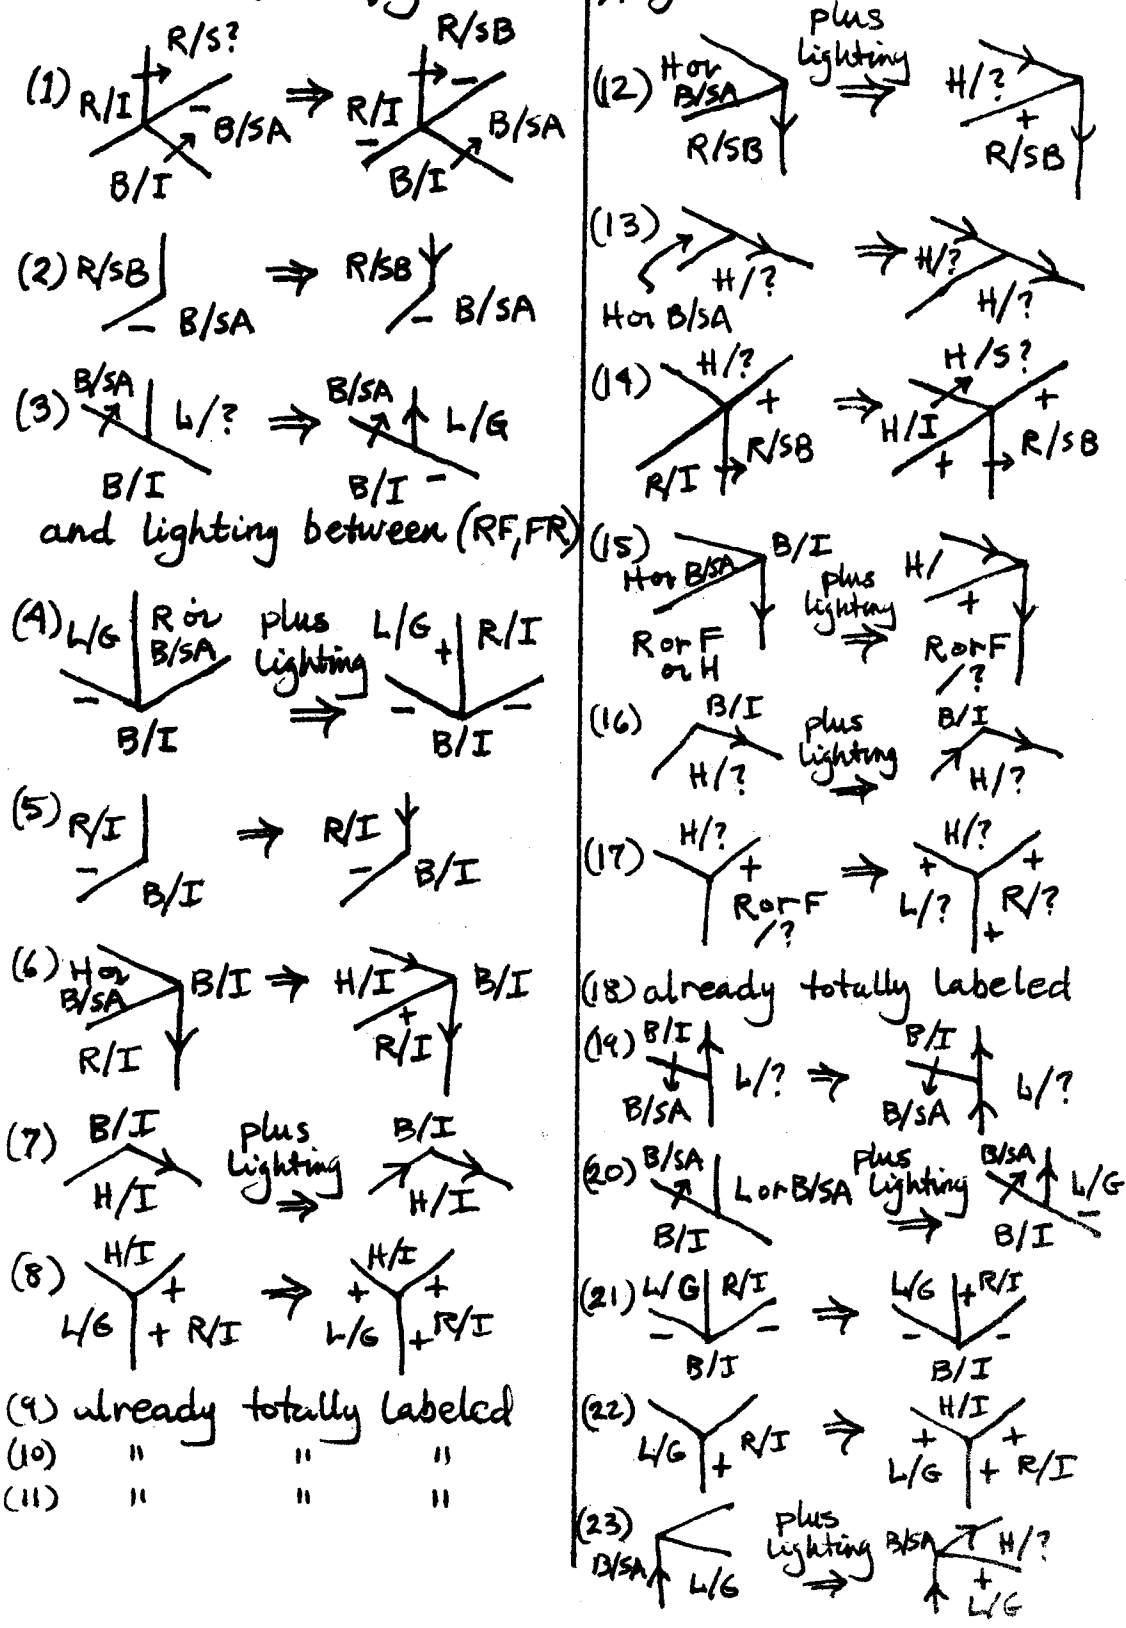 (1) R/S? R/I − B/SA B/I ⇒ R/SB R/I − − B/SA B/I
(2) R/SB − B/SA ⇒ R/SB − B/SA
(3) B/SA L/? B/I ⇒ B/SA L/G B/I −
and lighting between (RF, FR)
(4) L/G R or B/SA − B/I plus lighting ⇒ L/G + R/I − − B/I
(5) R/I − B/I ⇒ R/I − B/I
(6) H or B/SA B/I R/I ⇒ H/I B/I + R/I
(7) B/I H/I plus lighting ⇒ B/I H/I
(8) H/I + L/G + R/I ⇒ H/I + + L/G + R/I
(9) already totally labeled
(10) " " "
(11) " " "
plus
(12) H or B/SA R/SB lighting ⇒ H/? + R/SB
(13) H/? H or B/SA ⇒ H/? H/?
(14) H/? + R/SB R/I ⇒ H/S? H/I + + R/SB
(15) B/I H or B/SA R or F or H plus lighting ⇒ H/ + R or F /?
(16) B/I H/? plus lighting ⇒ B/I H/?
(17) H/? + R or F /? ⇒ H/? + + L/? R/? +
(18) already totally labeled
(19) B/I L/? B/SA ⇒ B/I L/? B/SA
(20) B/SA L or B/SA B/I plus lighting ⇒ B/SA L/G − B/I
(21) L/G R/I − − B/I ⇒ L/G + R/I − − B/I
(22) L/G + R/I ⇒ H/I + + L/G + R/I
(23) B/SA L/G plus lighting ⇒ B/SA H/? + L/G